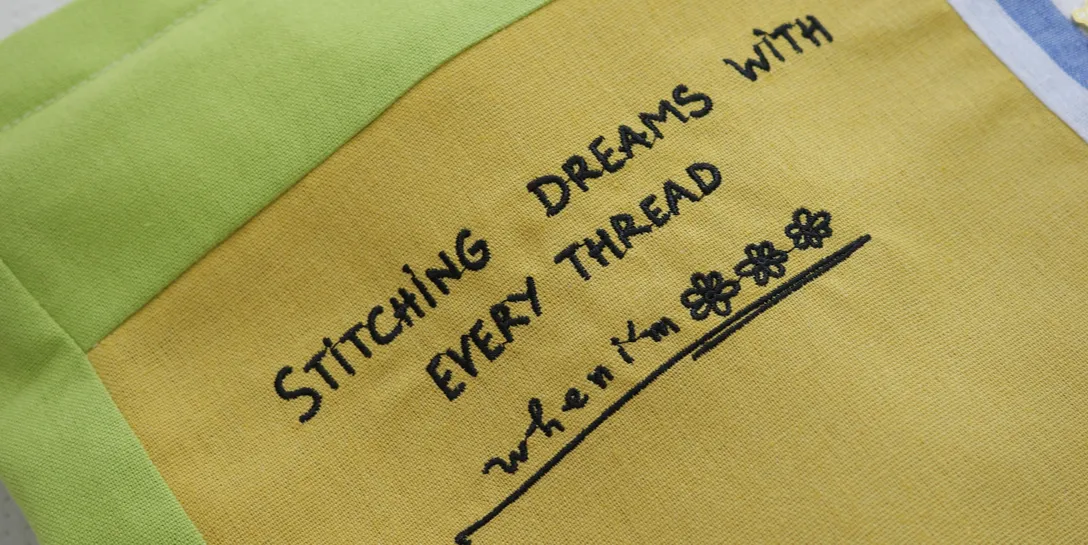 STITCHING DREAMS WITH
EVERY THREAD
when i'm